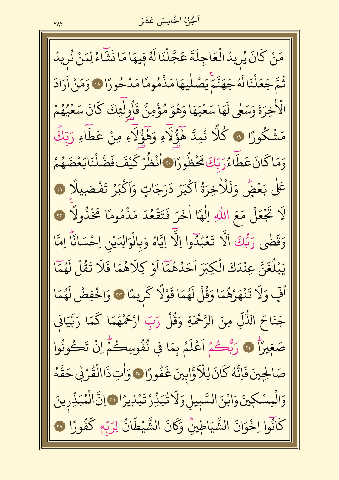 اَلْجُزْءُ الْخَامِسَ عَشَرَ
مَنْ كَانَ يُرِيدُ الْعَاجِلَةَ عَجَّلْنَا لَهُ فِيهَا مَا نَشَٓاءُ لِمَنْ نُرِيدُ
ثُمَّ جَعَلْنَا لَهُ جَهَنَّمَۚ يَصْلٰيهَا مَذْمُومًا مَدْحُورًا ۝ وَمَنْ اَرَادَ
الْاٰخِرَةَ وَسَعٰى لَهَا سَعْيَهَا وَهُوَ مُؤْمِنٌ فَاُو۬لٰٓئِكَ كَانَ سَعْيُهُمْ
مَشْكُورًا ۝ كُلًّا نُمِدُّ هٰٓؤُ۬لَٓاءِ وَهٰٓؤُ۬لَٓاءِ مِنْ عَطَٓاءِ رَبِّكَۜ
وَمَا كَانَ عَطَٓاءُ رَبِّكَ مَحْظُورًا ۝ اُنْظُرْ كَيْفَ فَضَّلْنَا بَعْضَهُمْ
عَلٰى بَعْضٍۜ وَلَلْاٰخِرَةُ اَكْبَرُ دَرَجَاتٍ وَاَكْبَرُ تَفْضِيلًا ۝
لَا تَجْعَلْ مَعَ اللّٰهِ اِلٰهًا اٰخَرَ فَتَقْعُدَ مَذْمُومًا مَخْذُولًا۟ ۝
وَقَضٰى رَبُّكَ اَلَّا تَعْبُدُٓوا اِلَّٓا اِيَّاهُ وَبِالْوَالِدَيْنِ اِحْسَانًاۜ اِمَّا
يَبْلُغَنَّ عِنْدَكَ الْكِبَرَ اَحَدُهُمَٓا اَوْ كِلَاهُمَا فَلَا تَقُلْ لَهُمَٓا
اُفٍّ وَلَا تَنْهَرْهُمَا وَقُلْ لَهُمَا قَوْلًا كَرِيمًا ۝ وَاخْفِضْ لَهُمَا
جَنَاحَ الذُّلِّ مِنَ الرَّحْمَةِ وَقُلْ رَبِّ ارْحَمْهُمَا كَمَا رَبَّيَانِي
صَغِيرًاۜ ۝ رَبُّكُمْ اَعْلَمُ بِمَا فِي نُفُوسِكُمْۜ اِنْ تَكُونُوا
صَالِحِينَ فَاِنَّهُ كَانَ لِلْاَوَّابِينَ غَفُورًا ۝ وَاٰتِ ذَا الْقُرْبٰى حَقَّهُ
وَالْمِسْكِينَ وَابْنَ السَّبِيلِ وَلَا تُبَذِّرْ تَبْذِيرًا ۝ اِنَّ الْمُبَذِّرِينَ
كَانُٓوا اِخْوَانَ الشَّيَاطِينِۜ وَكَانَ الشَّيْطَانُ لِرَبِّهِ كَفُورًا ۝